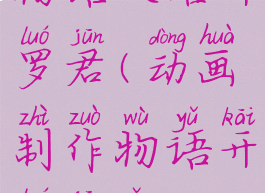 luó jūn dòng huà
罗君(动画
zhì zuò wù yǔ kāi
制作物语开